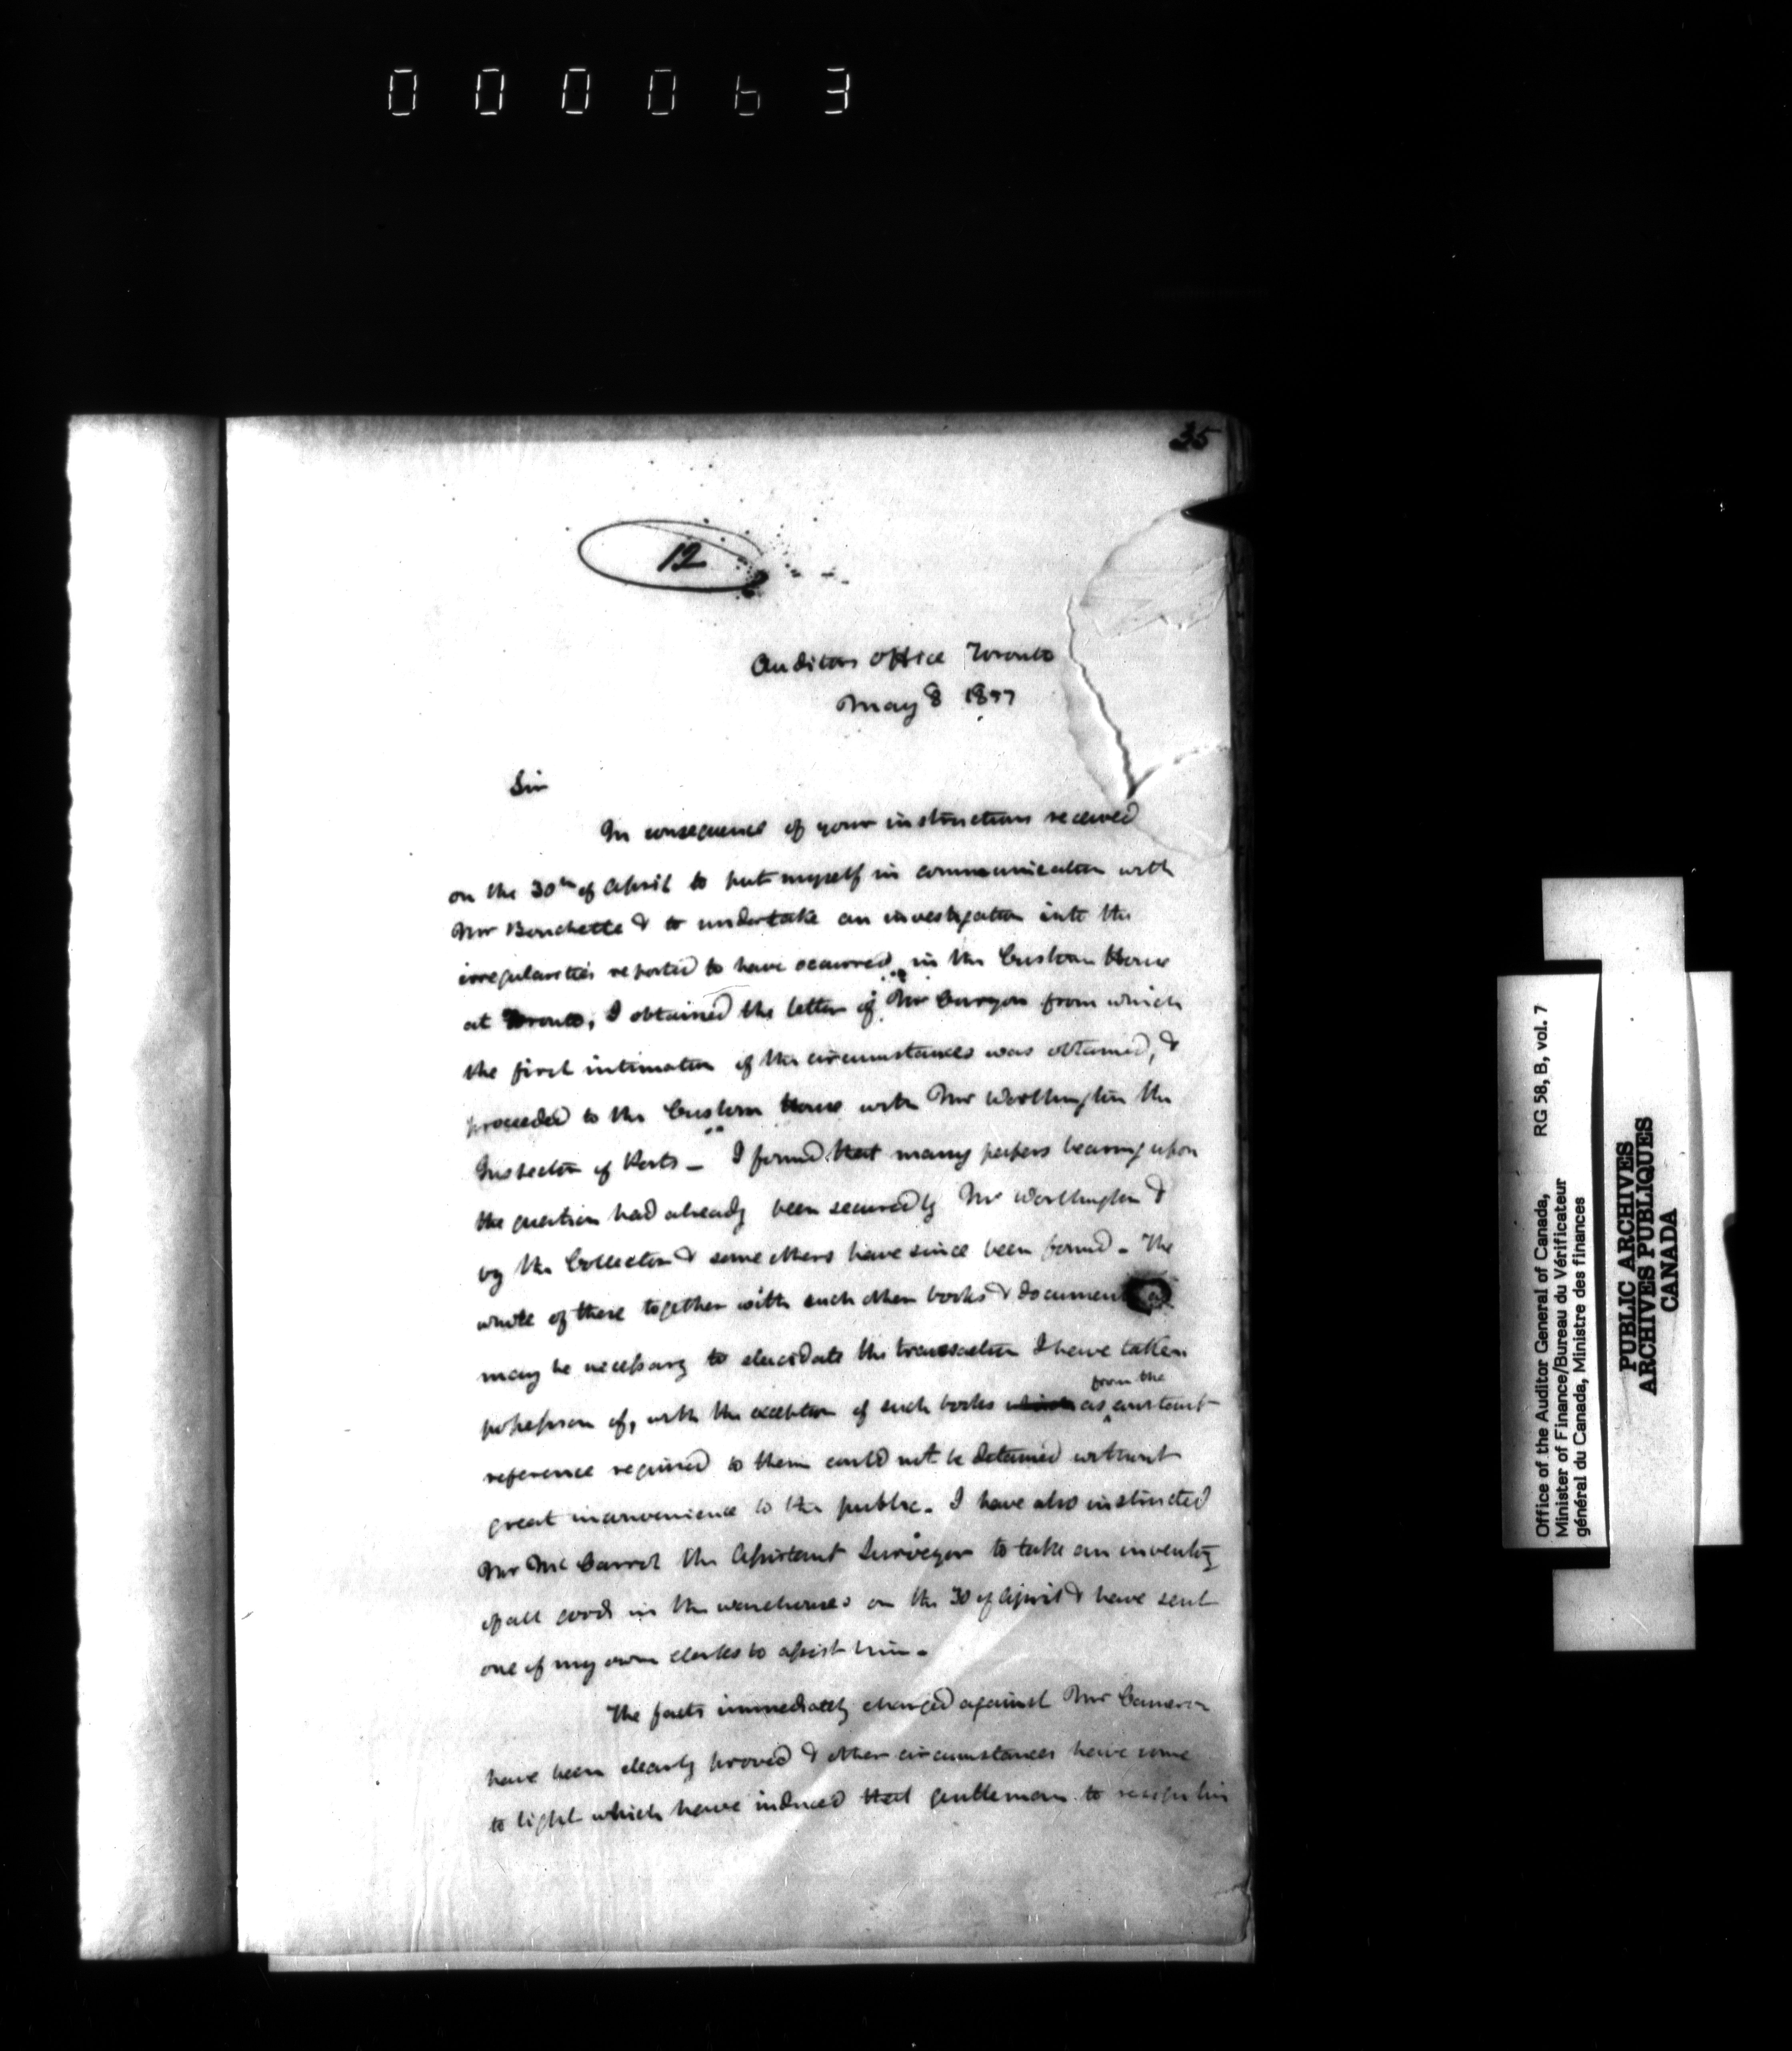 000063
35
12
Auditors Office Toronto
May 8 1857
Sir
In consequence of your instructions received
on the 30th of April to put myself in communication with
Mr Bouchette & to undertake an investigation into the
irregularities reported to have occurred in the Custom House
at Toronto, I obtained the letter of Mr Curzon from which
the first intimation of the circumstances was obtained, &
proceeded to the Custom House with Mr Worthington the
Inspector of Ports – I found that many papers bearing upon
the question had already been secured by Mr Worthington &
by the Collector & some others have since been found – The
whole of these together with such other books & documents as
may be necessary to elucidate the transaction I have taken
possession of, with the exception of such books as from the constant
reference required to them could not be detained without
great inconvenience to the public. I have also instructed
Mr McCarrol the Assistant Surveyor to take an inventory
of all goods in the warehouses on the 30 of April & have sent
one of my own clerks to assist him –
The facts immediately charged against Mr Cameron
have been clearly proved & other circumstances have come
to light which have induced that gentleman to resign his
Office of the Auditor General of Canada, RG 58, B, vol. 7
Minister of Finance/Bureau du Vérificateur
général du Canada, Ministre des finances
PUBLIC ARCHIVES
ARCHIVES PUBLIQUES
CANADA